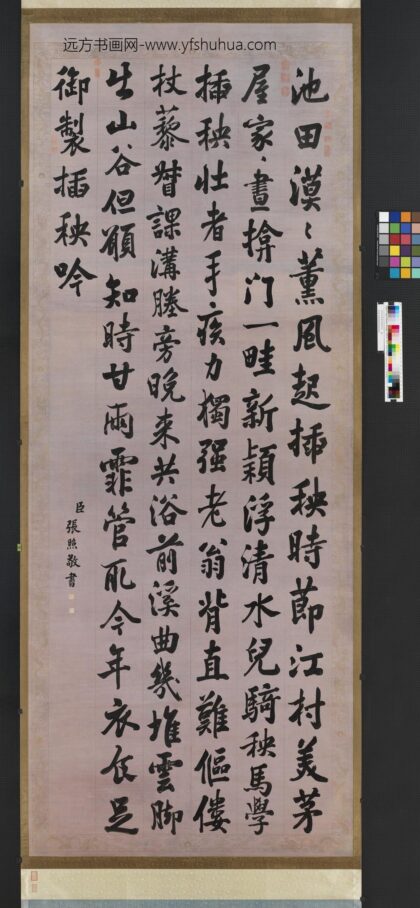 远方书画网-www.yfshuhua.com
池田漠〻薰风起插秧時節江村美茅
屋家〻晝揜门一畦新穎浮清水兒騎秧馬學
插秧壮者手疾力獨强老翁背直難傴僂
杖藜督課溝塍旁晚来共浴前溪曲幾堆雲脚
出山谷但願知時甘雨霏管取今年衣食足
御製插秧吟
臣
張照敬書